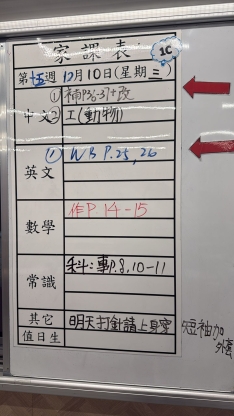 家課表
1C
第十五週 12月10日(星期三)
①補P.36-37+改
中文 ② 工(動物)
① WB P.25, 26
英文
作P 14-15
數學
科:P.8, 10-11
常識
其它 明天打針請上身穿短袖加外套
值日生